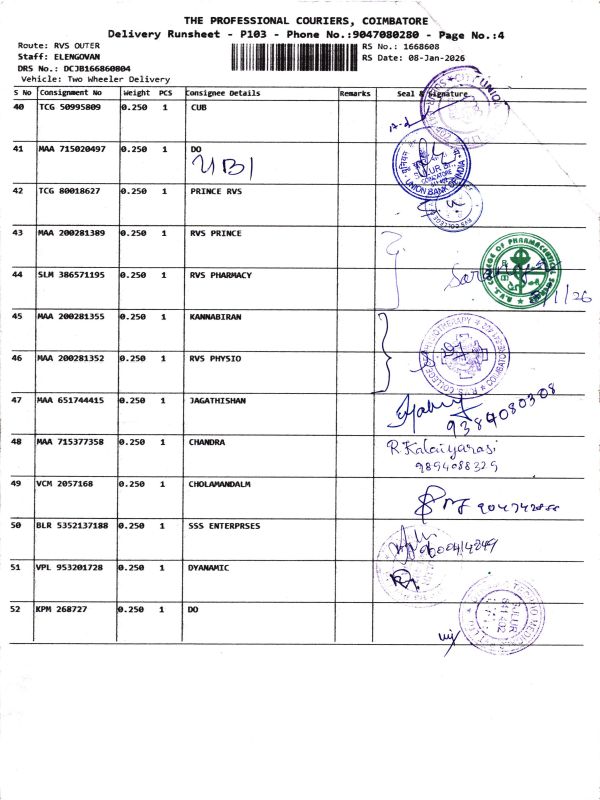 THE PROFESSIONAL COURIERS, COIMBATORE
Delivery Runsheet - P103 - Phone No.:9047080280 - Page No.:4
Route: RVS OUTER
RS No.: 1668608
Staff: ELENGOVAN
RS Date: 08-Jan-2026
DRS No.: DCJB166860804
Vehicle: Two Wheeler Delivery
S No Consignment No Weight PCS Consignee Details Remarks Seal & Signature
40 TCG 50995809 0.250 1 CUB
41 MAA 715020497 0.250 1 DO
UBI
42 TCG 80018627 0.250 1 PRINCE RVS
43 MAA 200281389 0.250 1 RVS PRINCE
44 SLM 386571195 0.250 1 RVS PHARMACY
45 MAA 200281355 0.250 1 KANNABIRAN
46 MAA 200281352 0.250 1 RVS PHYSIO
47 MAA 651744415 0.250 1 JAGATHISHAN
9384080308
48 MAA 715377358 0.250 1 CHANDRA
R. Kalaiyarasi
9894088329
49 VCM 2057168 0.250 1 CHOLAMANDALM
50 BLR 5352137188 0.250 1 SSS ENTERPRSES
51 VPL 953201728 0.250 1 DYANAMIC
52 KPM 268727 0.250 1 DO
UNION BANK OF INDIA
R.V.S. COLLEGE OF PHARMACEUTICAL